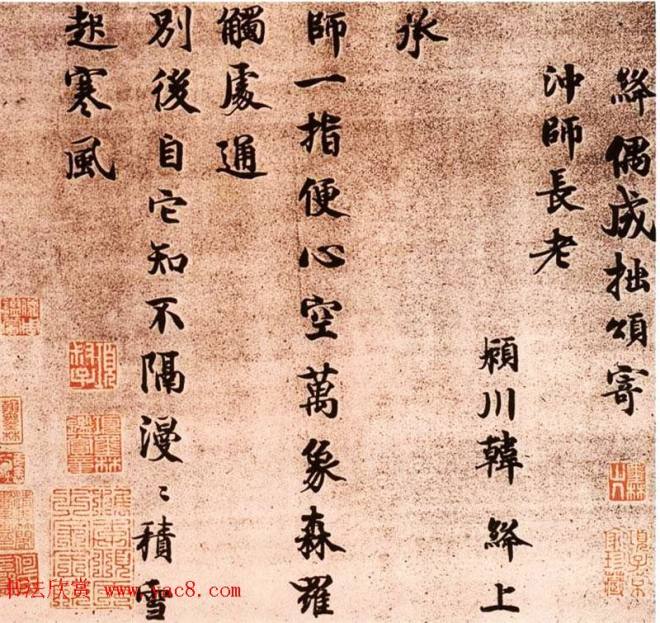 絳偶成拙頌寄
沖師長老
潁川韓 絳上
承
師一指便心空萬象森羅
觸處通
別後自它知不隔漫〻積雪
起寒風
項子京家珍藏
书法欣赏 www.yac8.com